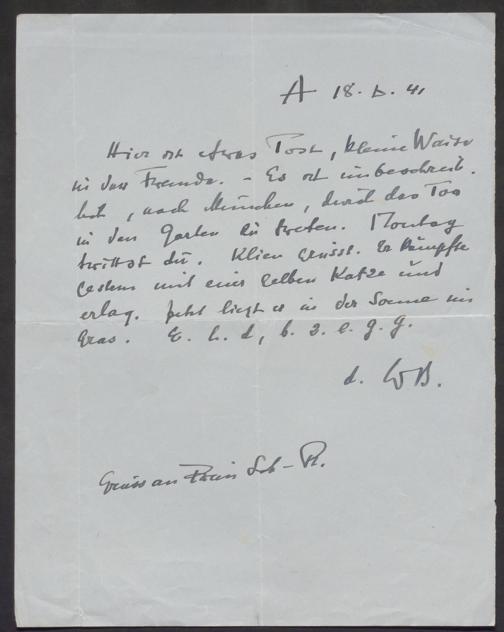 A 18. 5. 41
Hier ist etwas Post, kleine Waise
in der Fremde. – Es ist unbeschreib-
lich, nach München, durch das Tor
in den Garten zu treten. Montag
trittst du. Klien grüsst. Er kämpfte
gestern mit einer gelben Katze und
erlag. Jetzt liegt er in der Sonne im
Gras. E. h. d, b. z. e. g. g.
d. WB.
Gruss an Sch-R.